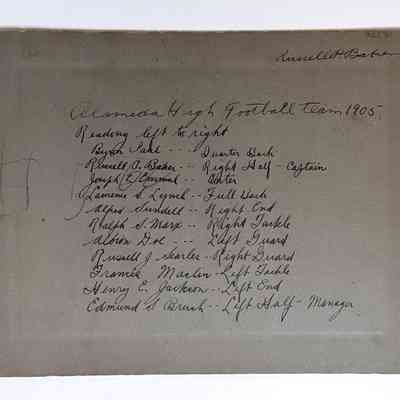 Russell P. Baker
Alameda High Football team 1905.
Reading left to right
Byron --- Quarter Back
Russell P. Baker -- Right Half - Captain
Joseph L. -- Center
S. Lynch -- Full Back
Alfred Sundell -- Right End
Ralph S. Marx -- Right Tackle
Albion Doe --- Left Guard
Russell J. Searles - Right Guard
Frank Maslin - Left Tackle
Henry E. Jackson -- Left End
Edmund S. Brush -- Left Half - Manager